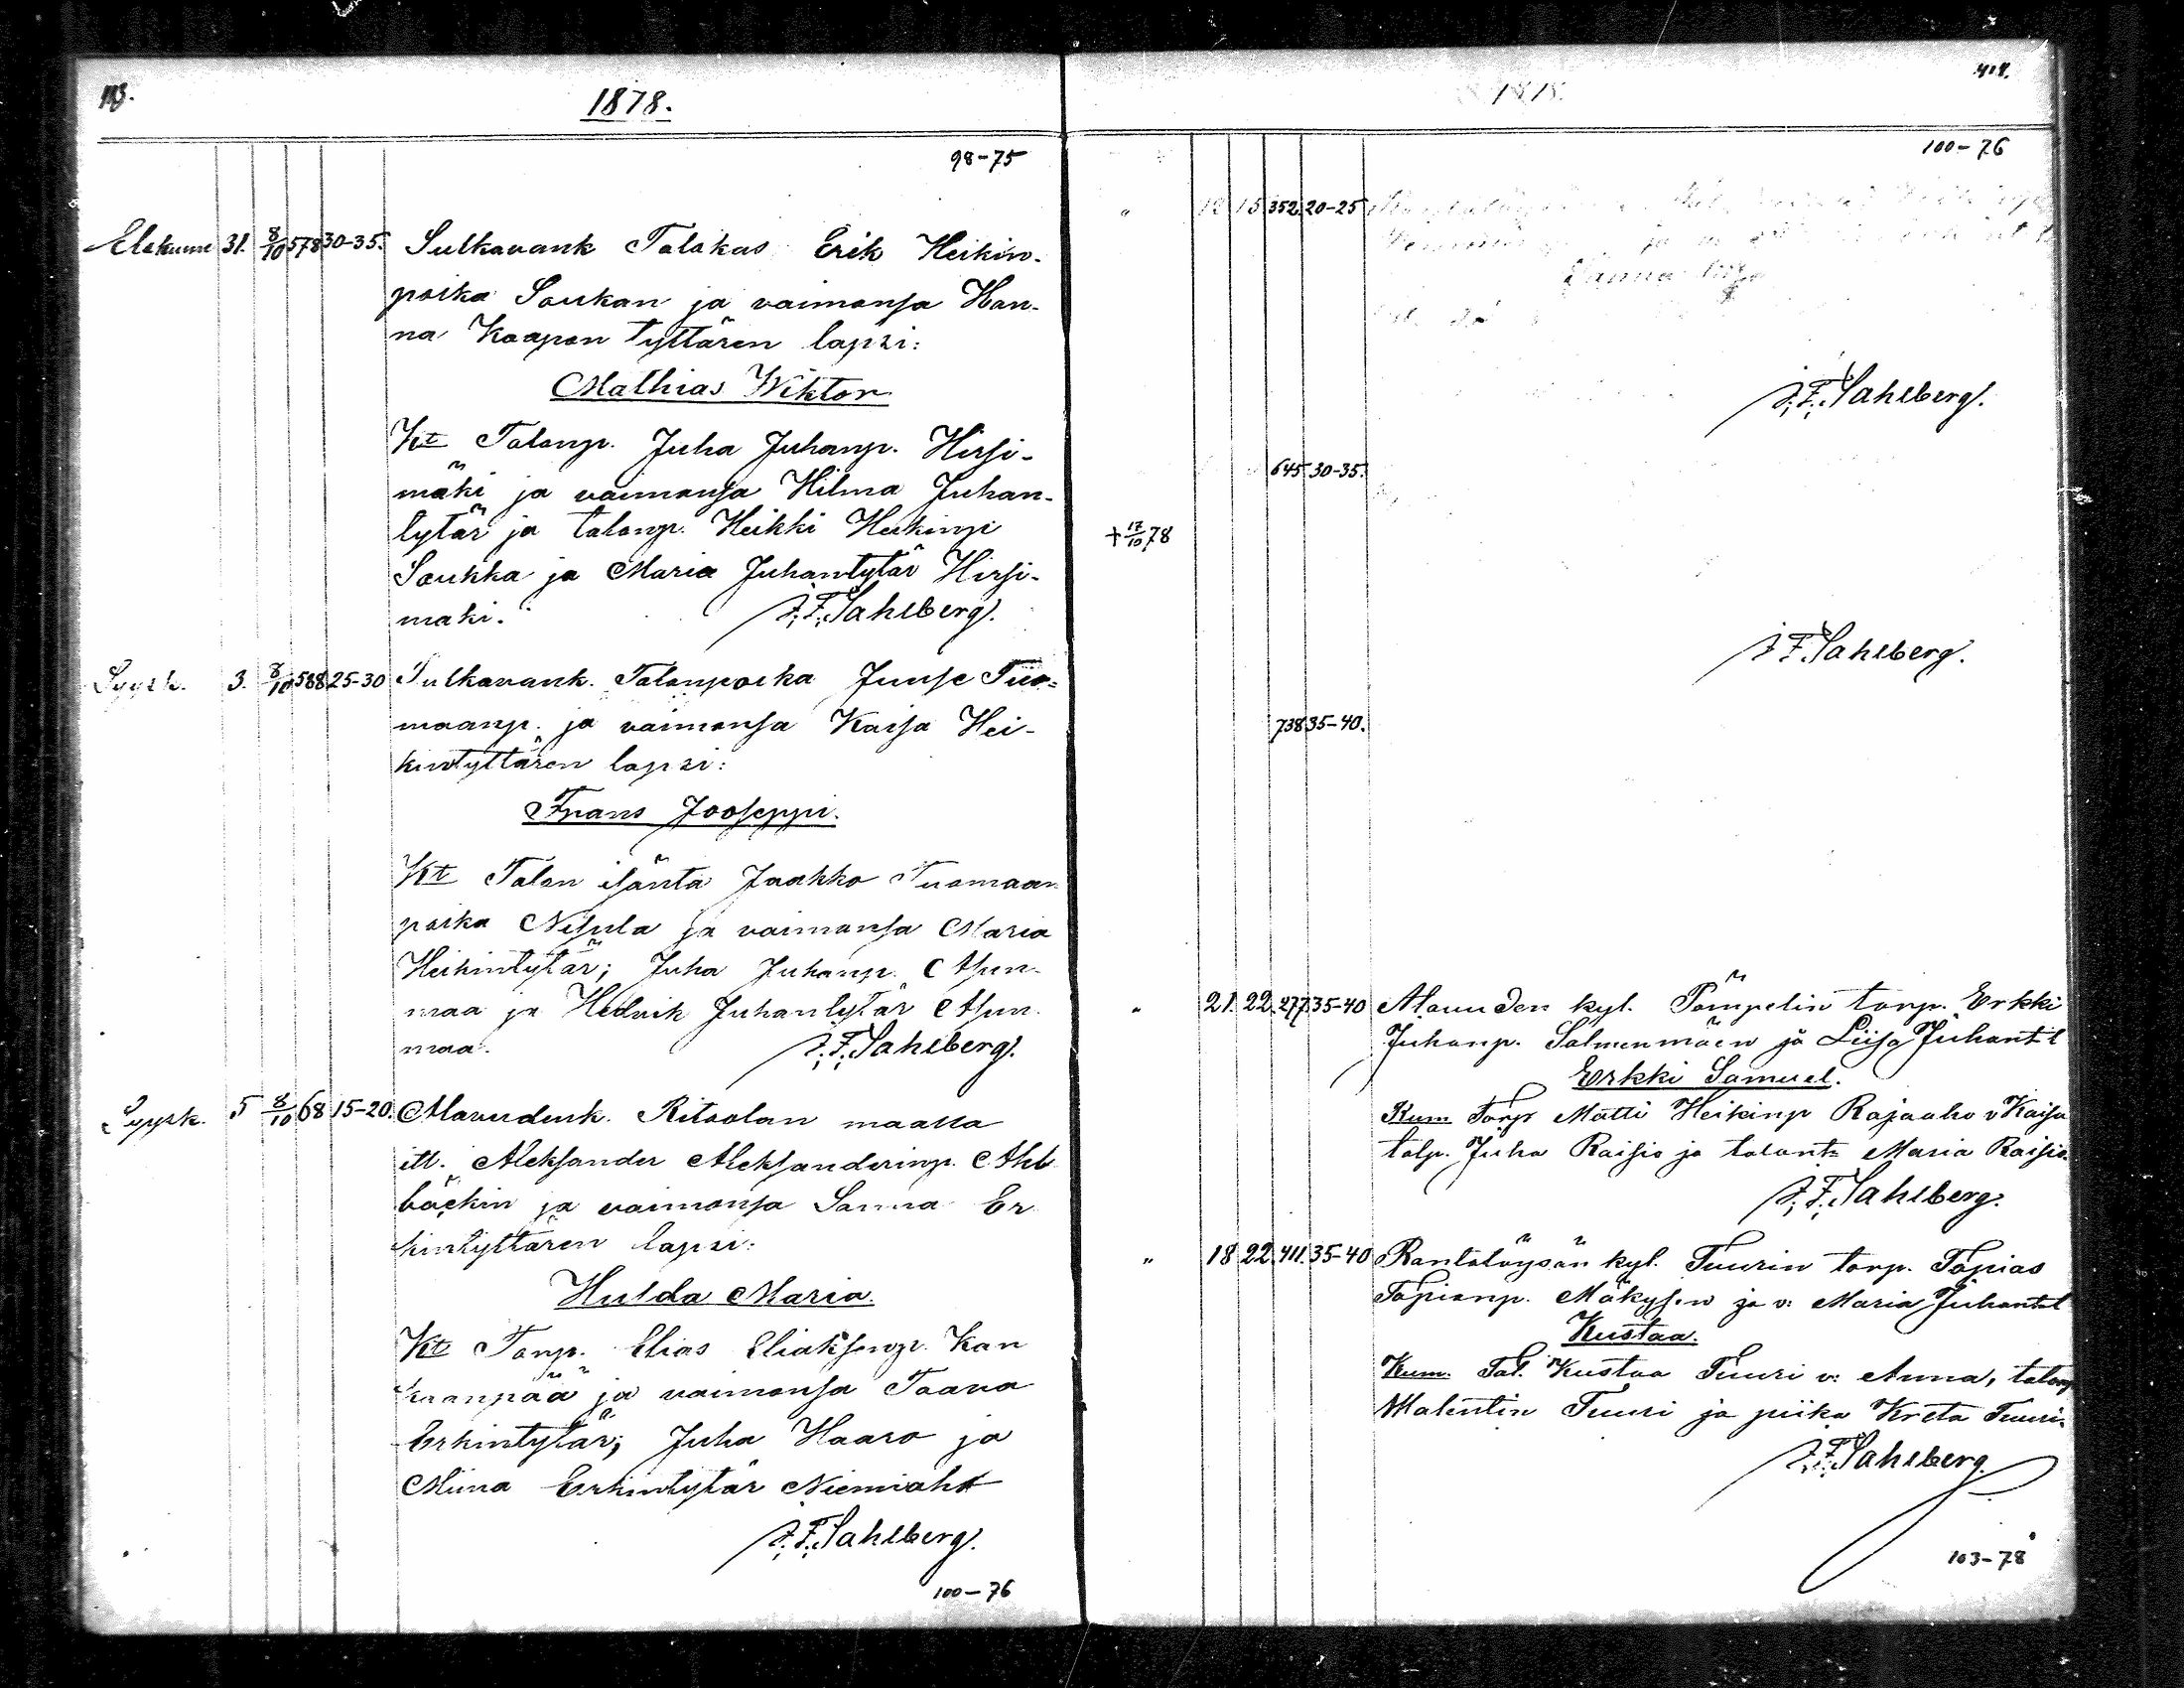 1878.
98-75
Elokuun 31. 8/10 578 30-35. Sulkavank Talokas Erik Heikin-
poika Soukan ja vaimonsa Han-
na Kaapon tyttären lapsi:
Mathias Wiktor
Kt Talonp. Juha Juhanp. Hirsi-
mäki ja vaimonsa Hilma Juhan-
tytär ja talonp. Heikki Heikinp
Soukka ja Maria Juhantytär Hirsi-
mäki. J. F. Sahlberg.
Syysk. 3. 8/10 588 25-30 Sulkavank. Talonpoika Juuse Tuo-
maanp. ja vaimonsa Kaisa Hei-
kintyttären lapsi:
Frans Jooseppi.
Kt Talon isäntä Jaakko Tuomaan
poika Nisula ja vaimonsa Maria
Heikintytär; Juha Juhanp. Asun-
maa ja Hedvik Juhantytär Asun
maa. J. F. Sahlberg.
Syysk. 5 8/10 68 15-20. Alavudenk. Ritoolan maalla
itl. Aleksander Aleksanderinp. Ahl
bäckin ja vaimonsa Sanna Er
kintyttären lapsi:
Hulda Maria.
Kt Torp. Elias Eliaksenp. Kan
kaanpää ja vaimonsa Taava
Erkintytär; Juha Haaro ja
Miina Erkintytär Niemiaht
J. F. Sahlberg.
100-76
100-76
" 12 15 352 20-25
Sanna
J. F. Sahlberg.
645 30-35.
+ 17/10 78
J. F. Sahlberg.
738 35-40.
" 21 22 277 35-40 Alavuden kyl. Pömpelin torp. Erkki
Juhanp. Salmenmäen ja Liisa Juhantt
Erkki Samuel.
Kum Torp Matti Heikinp Rajaaho v Kaisa
talp. Juha Raisio ja talont Maria Raisio.
J. F. Sahlberg.
" 18 22 411. 35-40 Rantatöysän kyl. Tuurin torp. Topias
Topianp. Mäkysen ja v: Maria Juhantt
Kustaa.
Kum. Tal. Kustaa Tuuri v: Anna, talonp
Malentin Tuuri ja piika Kreta Tuuri.
J. F. Sahlberg
103-78